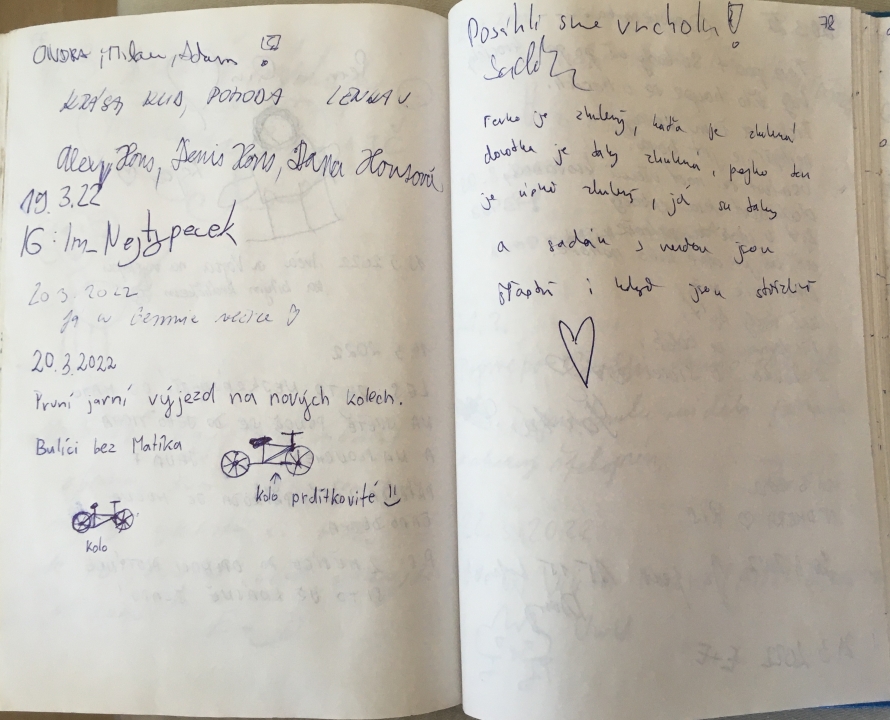 ONDRA, Milan, Adam !
KRÁSA KLID, POHODA LENKA V.
Alex Hons, Denis Hons, Dana Honsová
19.3.22
IG: Im_Nejtypecek
20.3.2022
Ja w
20.3.2022
První jarní výjezd na nových kolech.
Bulíci bez Matika
kolo prdítkovité !!
kolo
Posáhli sme vrcholu!
78
je zhulený, káťa je zhulená
dorotka je taky zhulená, pejko ten
je úplně zhulený, já su taky
a sadák s jsou
šťastní i když jsou střízliví